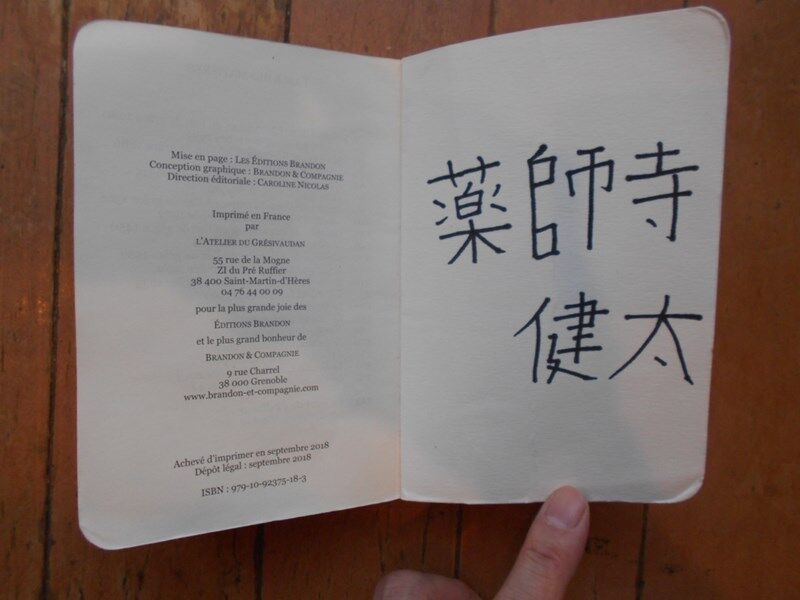 Mise en page : LES ÉDITIONS BRANDON
Conception graphique : BRANDON & COMPAGNIE
Direction éditoriale : CAROLINE NICOLAS
Imprimé en France
par
L'ATELIER DU GRÉSIVAUDAN
55 rue de la Mogne
ZI du Pré Ruffier
38 400 Saint-Martin-d'Hères
04 76 44 00 09
pour la plus grande joie des
ÉDITIONS BRANDON
et le plus grand bonheur de
BRANDON & COMPAGNIE
9 rue Charrel
38 000 Grenoble
www.brandon-et-compagnie.com
Achevé d'imprimer en septembre 2018
Dépôt légal : septembre 2018
ISBN : 979-10-92375-18-3
薬師寺
健太